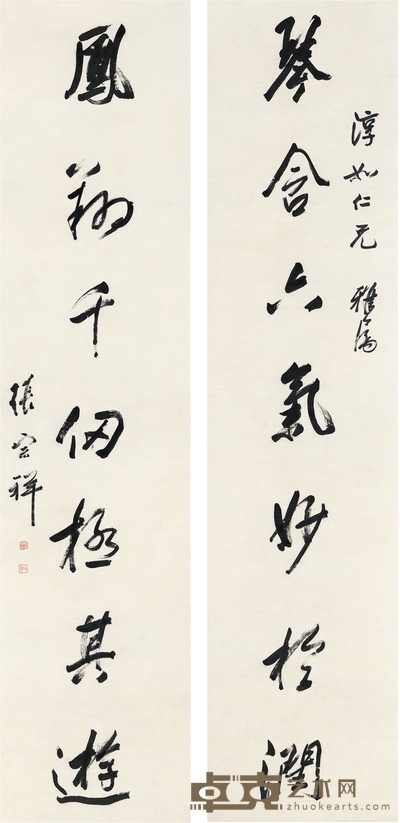 淳如仁兄 雅屬
琴含六氣妙於潤
鳳翔千仞極其遊
張宗祥
卓克艺术网
zhuokearts.com